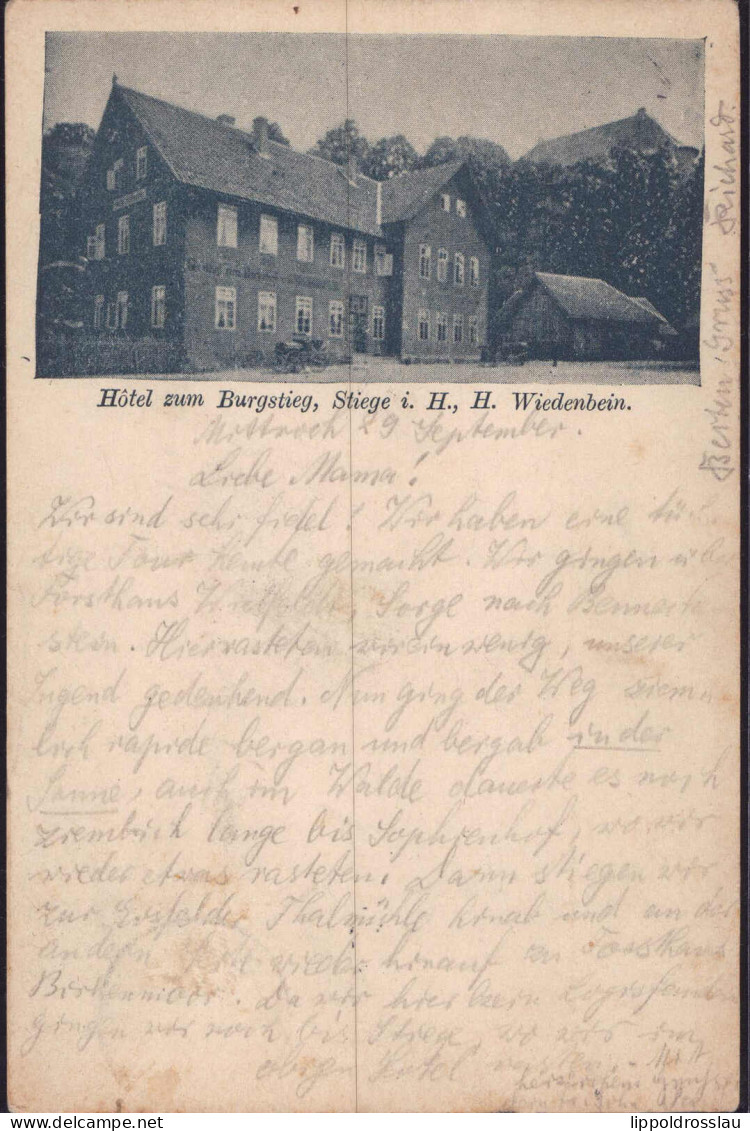 Hôtel zum Burgstieg, Stiege i. H., H. Wiedenbein.
Mittwoch 29 September.
Liebe Mama!
Wir sind sehr fidel! Wir haben eine tüch
tige Tour heute gemacht. Wir gingen über
Forsthaus Sorge nach Bennecken
stein. Hier rasteten wir ein wenig, unserer
Jugend gedenkend. Nun ging der Weg ziem
lich rapide bergan und bergab in der
Sonne, auch im Walde dauerte es noch
ziemlich lange bis Sophienhof, wo wir
wieder etwas rasteten. Dann stiegen wir
zur Eisfelder Thalmühle hinab und an der
andern wieder hinauf zu Forsthaus
Birkenmoor. Da wir hier kein Logis fanden
gingen wir noch bis Stiege, wo wir im
obigen Hotel rasten. Mit
herzlichem Gruss
Besten Gruss Richard.
lippoldrosslau